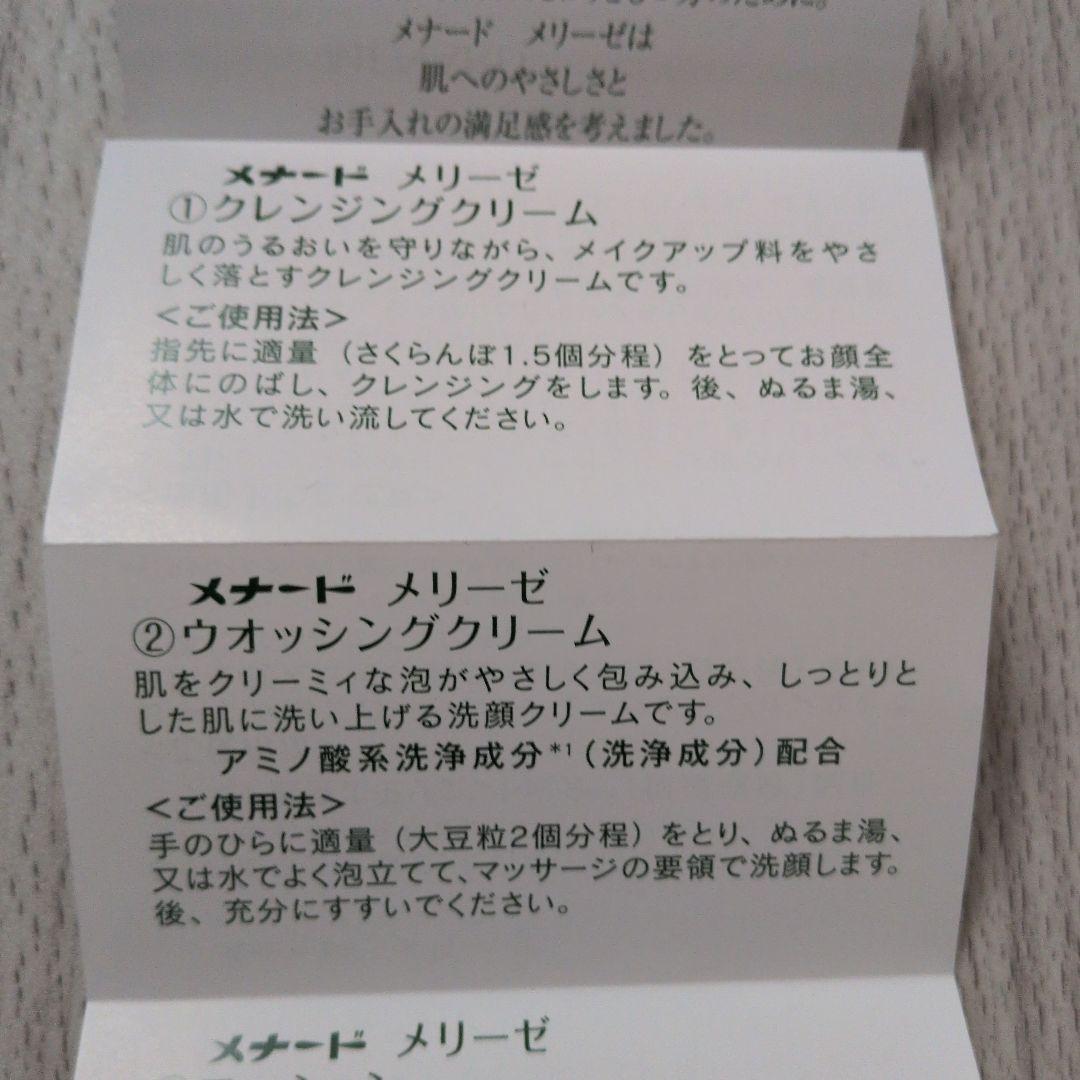 メナード メリーゼは
肌へのやさしさと
お手入れの満足感を考えました。
メナード メリーゼ
①クレンジングクリーム
肌のうるおいを守りながら、メイクアップ料をやさ
しく落とすクレンジングクリームです。
<ご使用法>
指先に適量(さくらんぼ1.5個分程)をとってお顔全
体にのばし、クレンジングをします。後、ぬるま湯、
又は水で洗い流してください。
メナード メリーゼ
②ウオッシングクリーム
肌をクリーミィな泡がやさしく包み込み、しっとりと
した肌に洗い上げる洗顔クリームです。
アミノ酸系洗浄成分*1(洗浄成分)配合
<ご使用法>
手のひらに適量(大豆粒2個分程)をとり、ぬるま湯、
又は水でよく泡立てて、マッサージの要領で洗顔します。
後、充分にすすいでください。
メナード メリーゼ